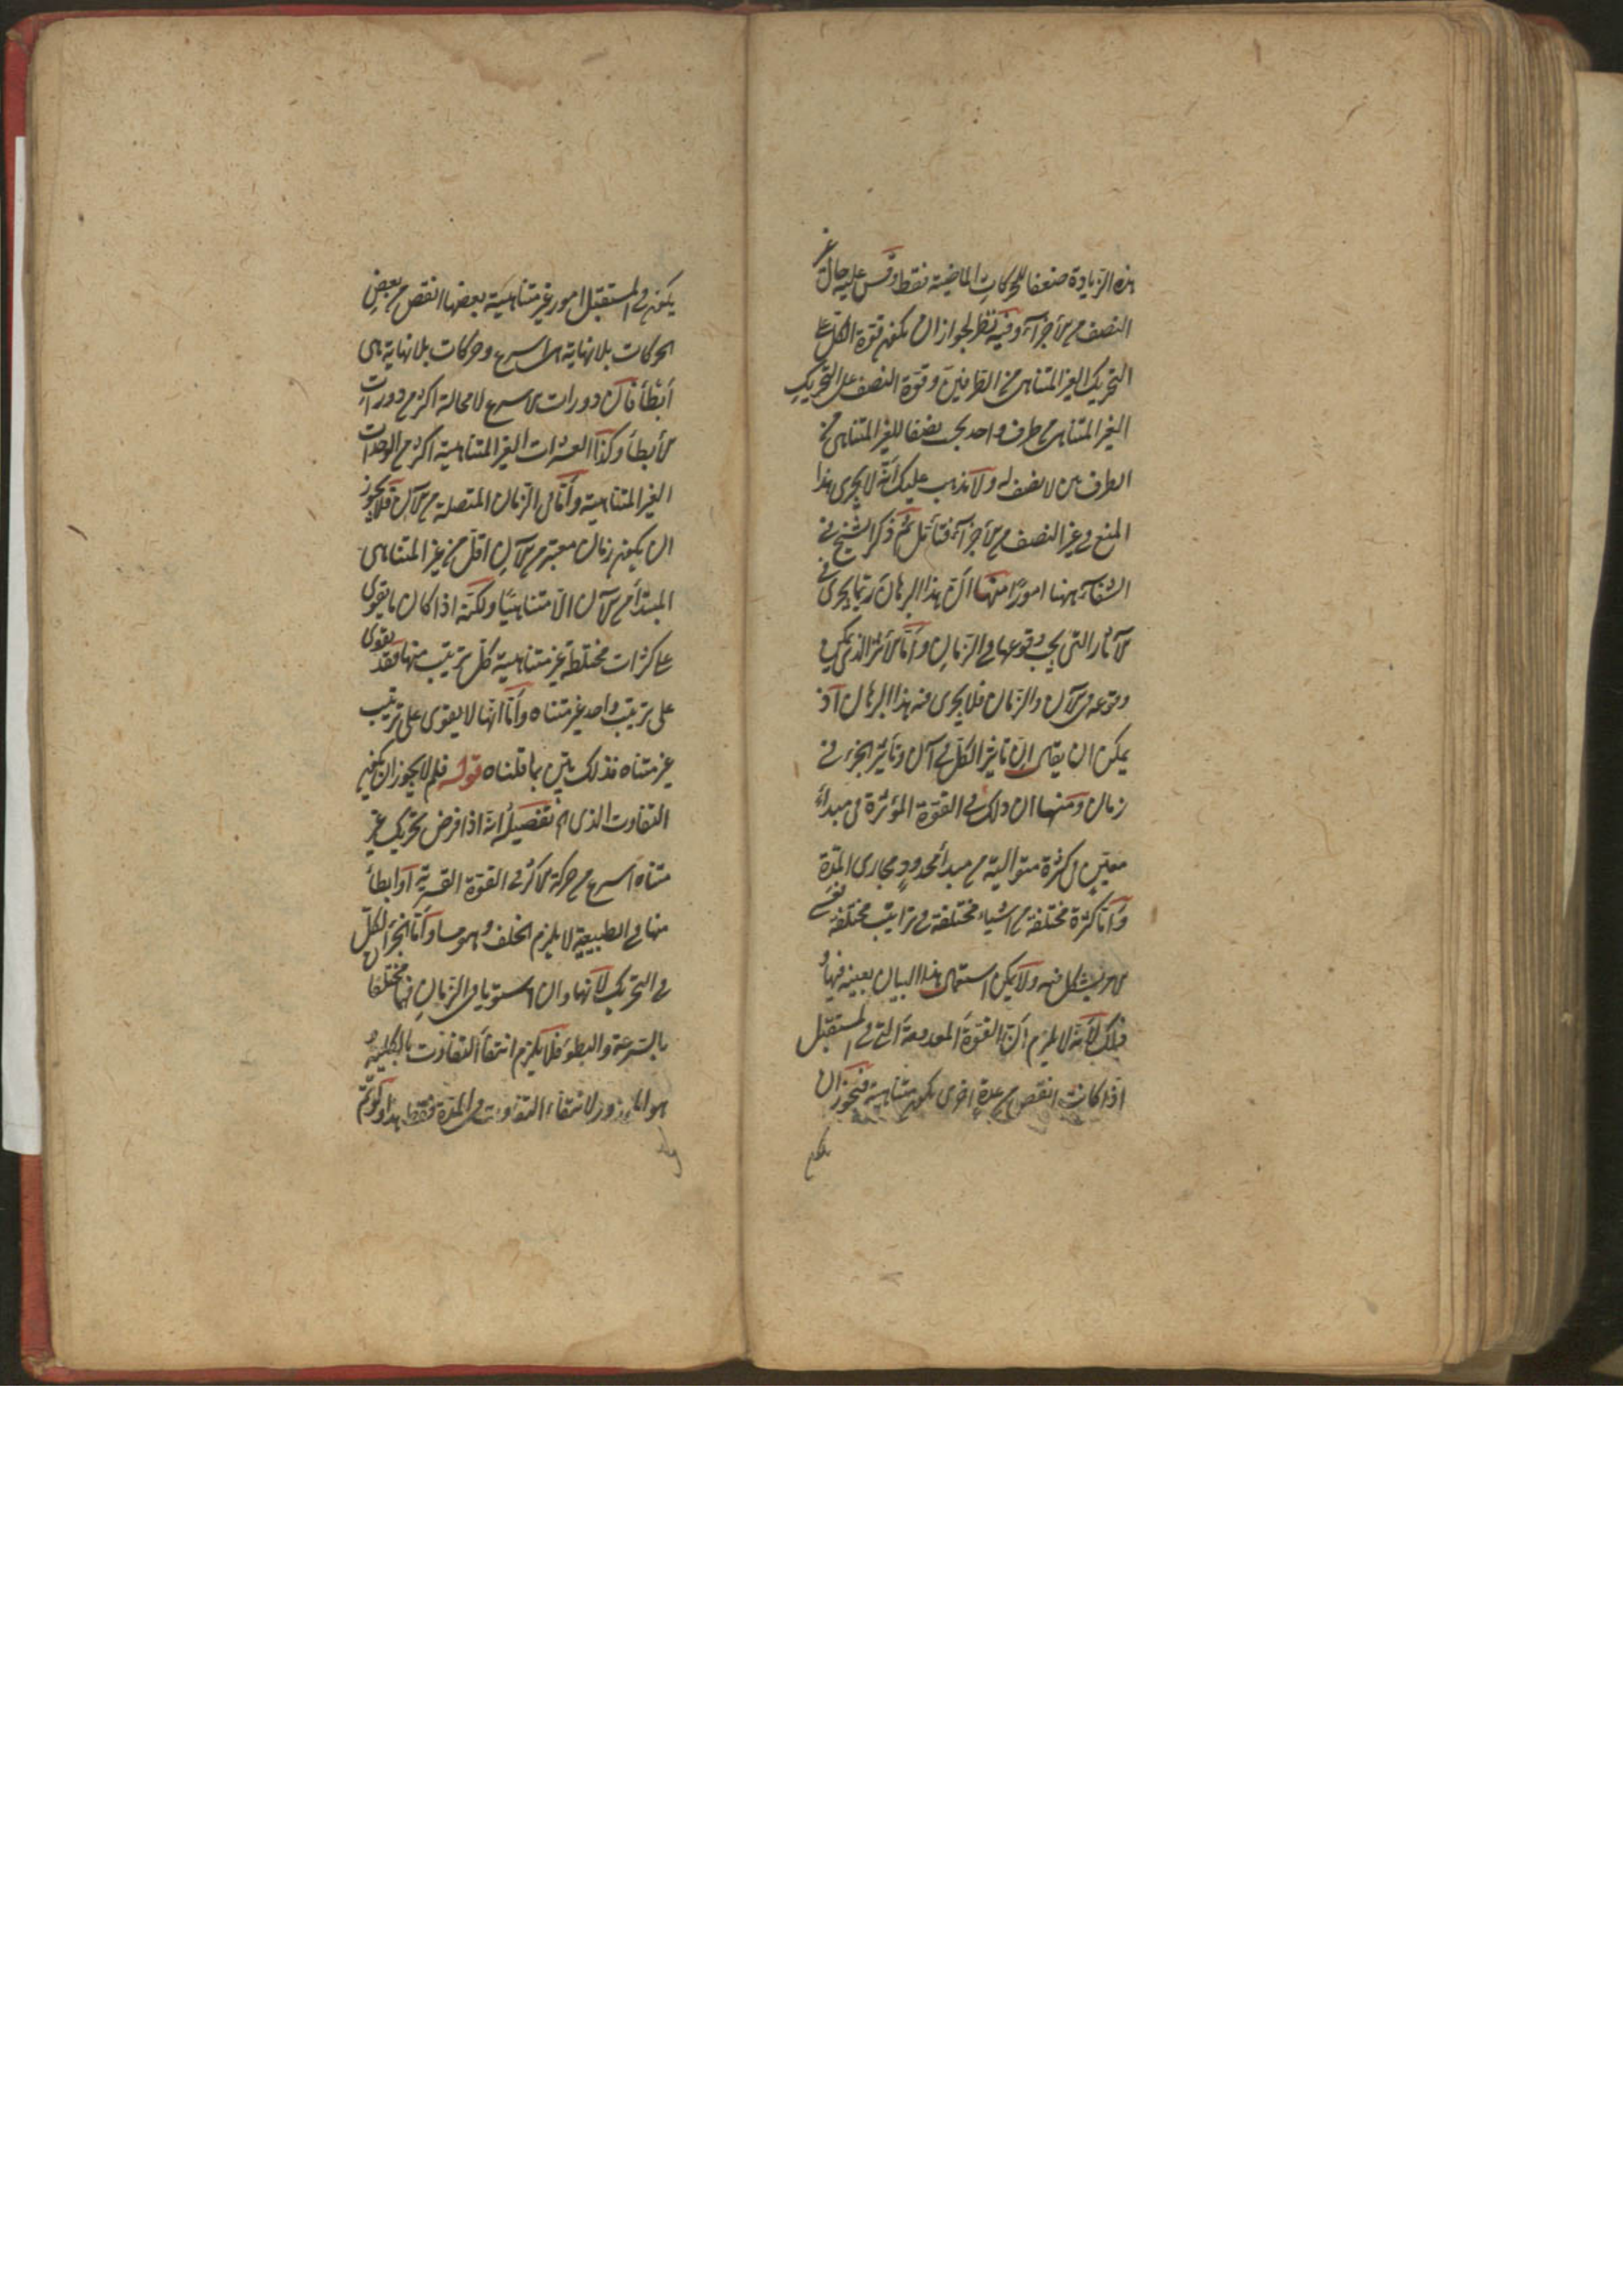 هذه الزيادة ضعفا للحركات الماضية فقط وقس عليه حال غير
النصف من الأجزاء وفيه نظر لجواز ان يكون قوة الكل على
التحريك الغير المتناهي من الطرفين وقوة النصف على التحريك
الغير المتناهي من طرف واحد يجب نصفا للغير المتناهي من
الطرف بين لا نصف له ولا يذهب عليك انه لا يجري هذا
المنع في غير النصف من الأجزاء فتأمل ثم ذكر الشيخ في
الشفاء ههنا امورًا منها ان هذا البرهان ربما يجري في
الآثار التي يجب وقوعها في الزمان واما الأثر الذي يمكن
وقوعه في الآن والزمان فلا يجري فيه هذا البرهان اذ
يمكن ان يقال ان تأثير الكل في آن وتأثير الجزء في
زمان ومنها ان ذلك في القوة المؤثرة من مبدأ
معين في كثرة متوالية من مبدأ محدود مجاري المدة
واما كثرة مختلفة من اشياء مختلفة في تراتيب مختلفة
الأمر يشكل فيه ولا يمكن استعمال هذا البيان بعينه فيها و
ذلك لأنه لا يلزم ان القوة المعدومة التي في المستقبل
اذا كانت انقص من عدة اخرى يكون متناهية فيجوز ان
يكون في المستقبل امور غير متناهية بعضها انقص من بعض
الحركات بلا نهاية اسرع وحركات بلا نهاية هي
أبطأ فان دورات الأسرع لا محالة اكثر من دورات
الأبطأ وكذا العشرات الغير المتناهية اكثر من الوحدات
الغير المتناهية واما في الزمان المتصلة من الآن فلا يجوز
ان يكون زمان معتبر من الآن اقل من غير المتناهي
المبتدأ من الآن الا متناهيًا ولكنه اذا كان ما يقوى
على كثرات مختلطة غير متناهية كل ترتيب منها فقد يقوى
على ترتيب واحد غير متناه واما انها لا يقوى على ترتيب
غير متناه فذلك بيّن بما قلناه قوله فلم لا يجوز ان يكون
التفاوت الذي الخ تفصيله انه اذا فرض تحريك غير
متناه اسرع من حركة الأكثر في القوة القسرية او ابطأ
منها في الطبيعية لا يلزم الخلف وهو مساواة الجزء الكل
في التحريك لأنهما وان استويا في الزمان فهما مختلفان
بالسرعة والبطؤ فلا يلزم انتفاء التفاوت بالكلية و
هو المحذور لا انتفاء التفاوت في المدة فقط هذا ولو تم